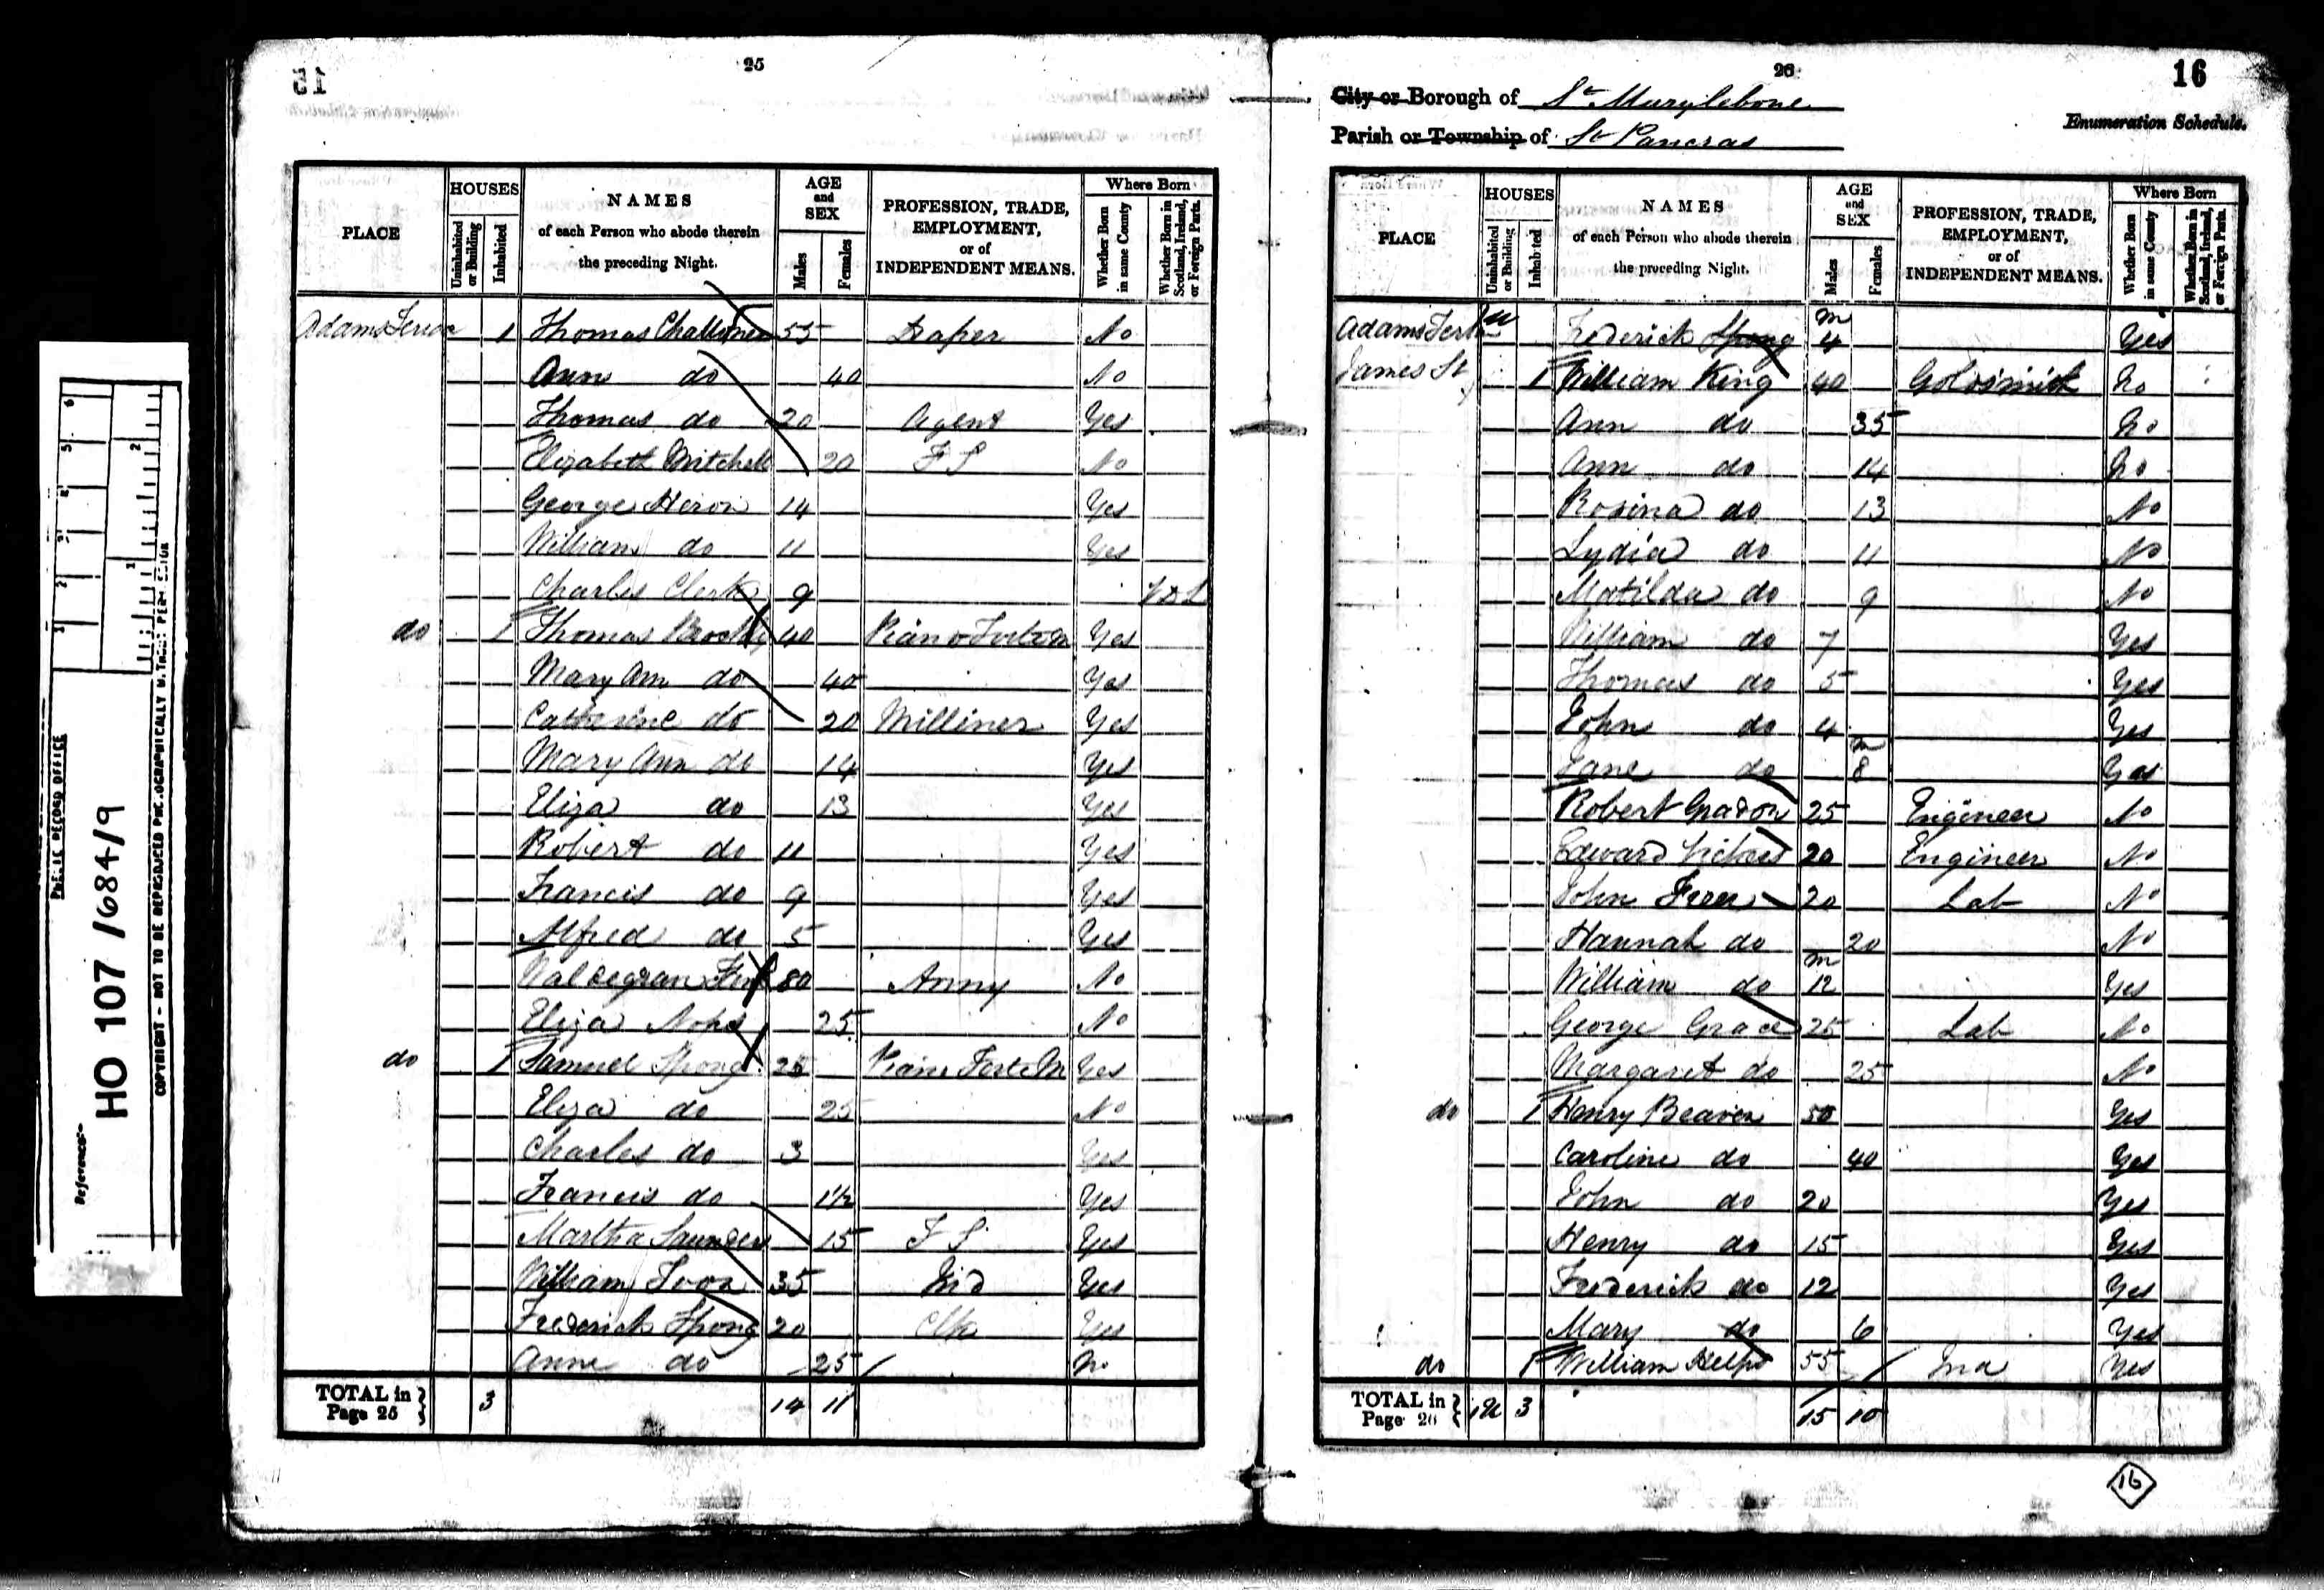 25
PLACE HOUSES Uninhabited or Building Inhabited NAMES of each Person who abode therein the preceding Night. AGE and SEX Males Females PROFESSION, TRADE, EMPLOYMENT, or of INDEPENDENT MEANS. Where Born Whether Born in same County Whether Born in Scotland, Ireland, or Foreign Parts.
Adams 1 Thomas 55 Draper No
Ann do 40 No
Thomas do 20 Agent Yes
Elizabeth Mitchell 20 F S No
George Heron 14 Yes
William do 11 Yes
Charles Clerk 9
do 1 Thomas 40 Piano Forte M Yes
Mary Ann do 40 Yes
Catherine do 20 Milliner Yes
Mary Ann do 14 Yes
Eliza do 13 Yes
Robert do 11 Yes
Francis do 9 Yes
Alfred do 5 Yes
80 Army No
Eliza 25 No
do 1 Samuel Spong 25 Piano Forte M Yes
Eliza do 25 No
Charles do 3 Yes
Francis do 1½ Yes
Martha Saunders 15 F S Yes
William 35 Ind Yes
Frederick Spong 20 Clk Yes
Anne do 25 No
TOTAL in Page 25 3 14 11
26
16
City or Borough of St Marylebone
Parish or Township of St Pancras
Enumeration Schedule.
PLACE HOUSES Uninhabited or Building Inhabited NAMES of each Person who abode therein the preceding Night. AGE and SEX Males Females PROFESSION, TRADE, EMPLOYMENT, or of INDEPENDENT MEANS. Where Born Whether Born in same County Whether Born in Scotland, Ireland, or Foreign Parts.
Adams Frederick Spong m 4 Yes
James St 1 William King 40 Goldsmith No
Ann do 35 No
Ann do 14 No
Rosina do 13 No
Lydia do 11 No
Matilda do 9 No
William do 7 Yes
Thomas do 5 Yes
John do 4 Yes
Jane do m 8 Yes
Robert Gradon 25 Engineer No
Edward 20 Engineer No
John 20 Lab No
Hannah do 20 No
William do m 12 Yes
George Grace 25 Lab No
Margaret do 25 No
do 1 Henry Beaven 50 Yes
Caroline do 40 Yes
John do 20 Yes
Henry do 15 Yes
Frederick do 12 Yes
Mary do 6 Yes
do 1 William 55 Ind Yes
TOTAL in Page 26 1U 3 15 10
16
PUBLIC RECORD OFFICE
Reference:-
HO 107 /684/9